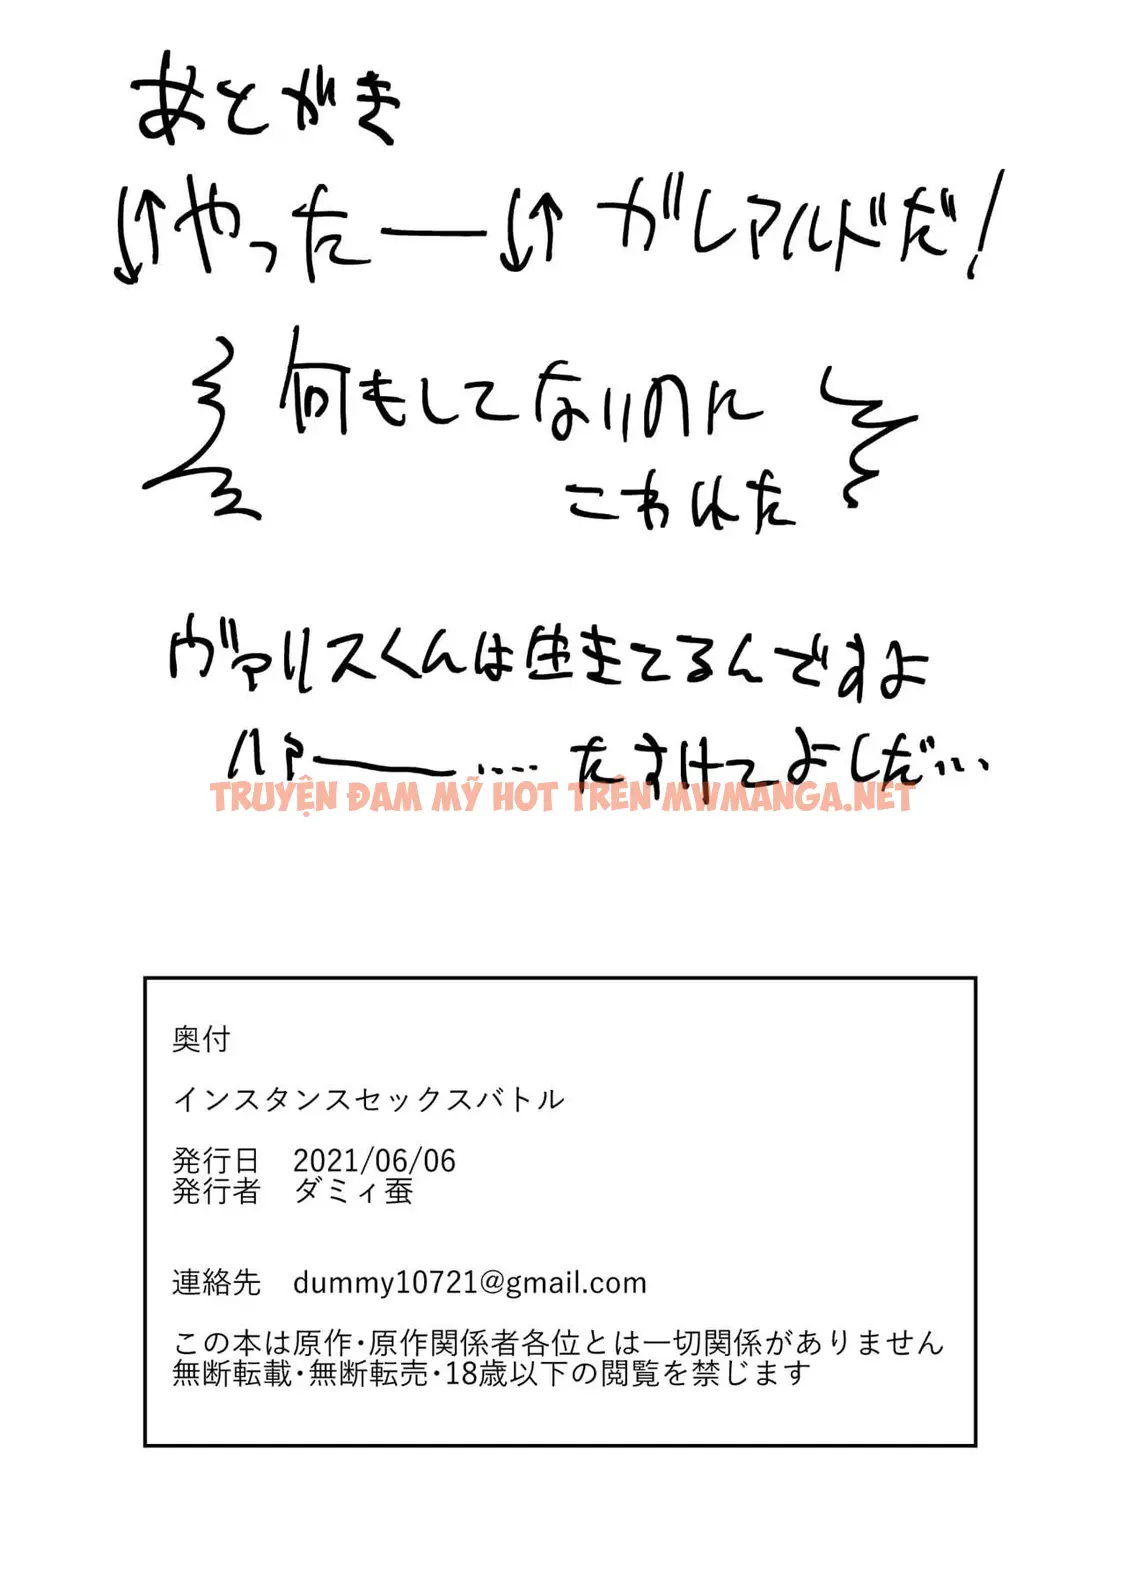 あとがき
↓↑やったー↓↑ ガレアルドだ!
何もしてないのに
こわれた
ヴァリスくんは生きてるんですよ
ハァー‥‥ たすけてよしだ…
TRUYỆN ĐAM MỸ HOT TRÊN MWMANGA.NET
奥付
インスタンスセックスバトル
発行日 2021/06/06
発行者 ダミィ蚕
連絡先 dummy10721@gmail.com
この本は原作・原作関係者各位とは一切関係がありません
無断転載・無断転売・18歳以下の閲覧を禁じます